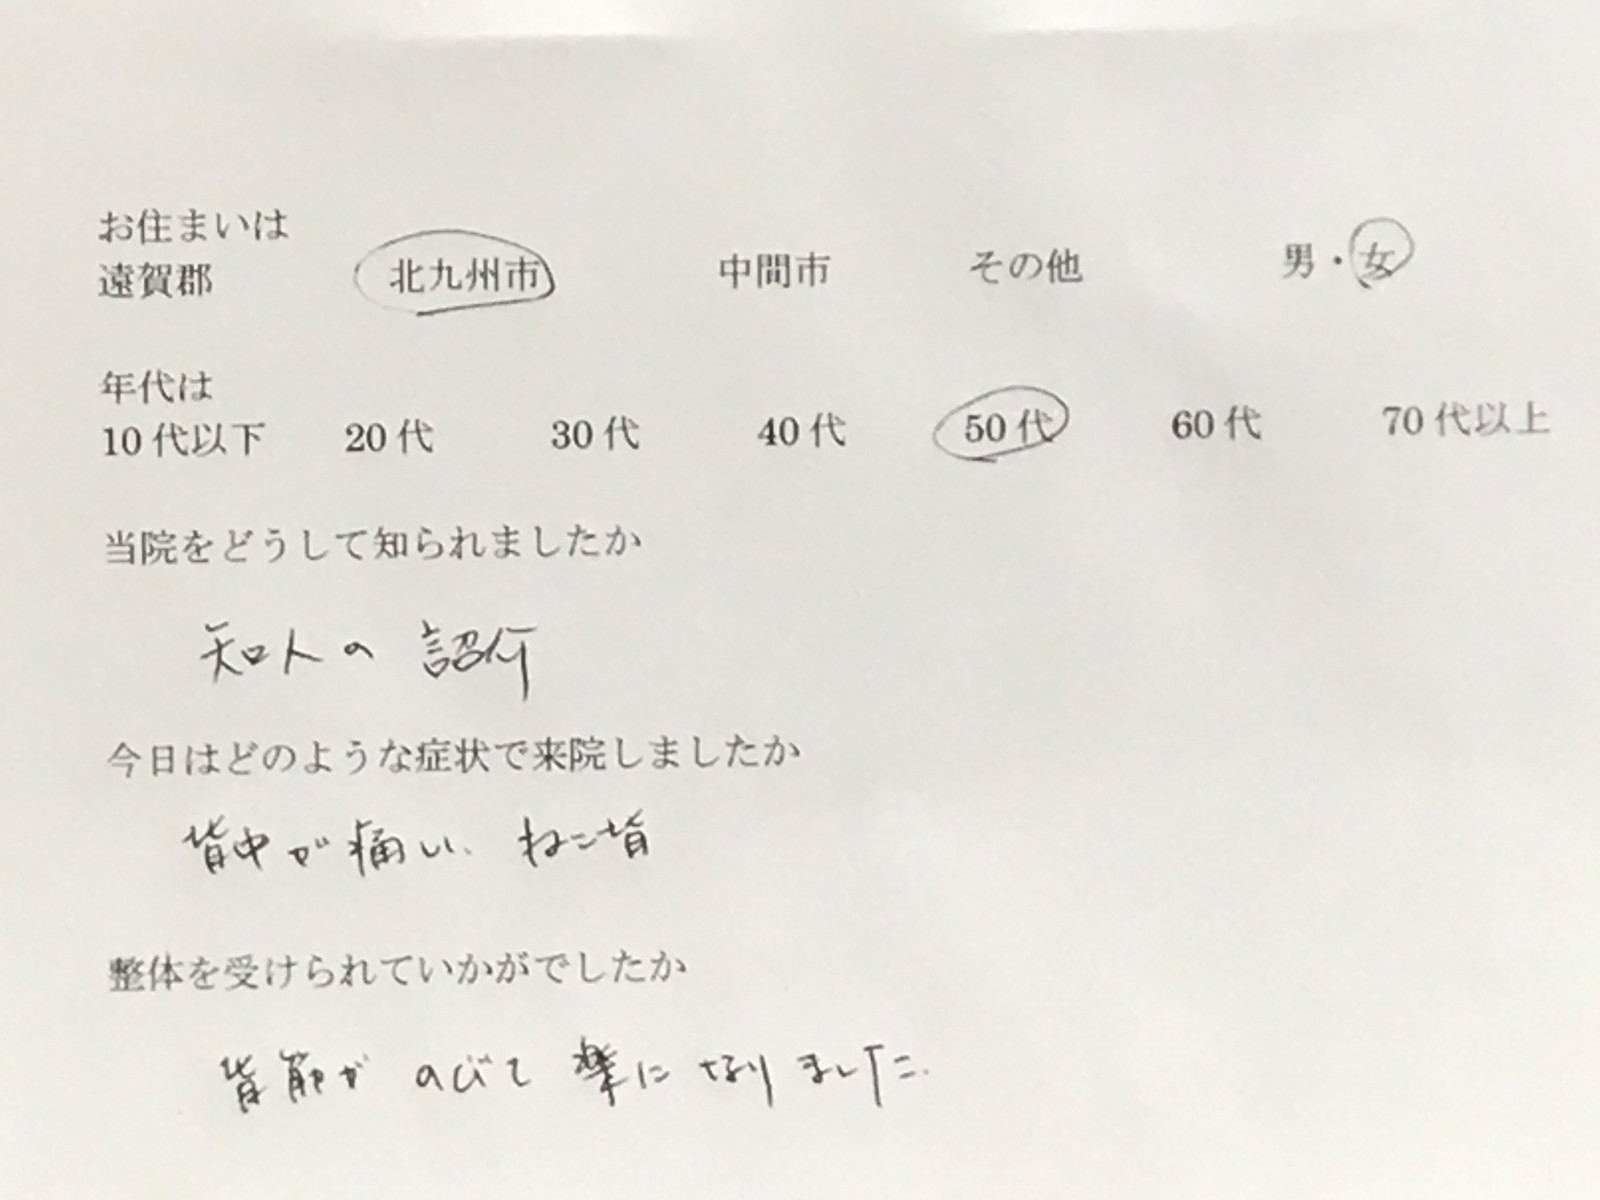 お住まいは
遠賀郡 北九州市 中間市 その他 男・女
年代は
10代以下 20代 30代 40代 50代 60代 70代以上
当院をどうして知られましたか
知人の 認介
今日はどのような症状で来院しましたか
背中が痛い、ねこ背
整体を受けられていかがでしたか
背筋が のびて 楽に なりました。